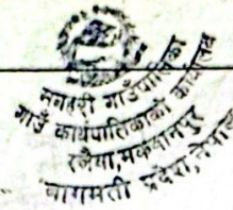 मनहरी गाउँपालिका
गाउँ कार्यपालिकाको कार्यालय
रजैया, मकवानपुर
बागमती प्रदेश, नेपाल